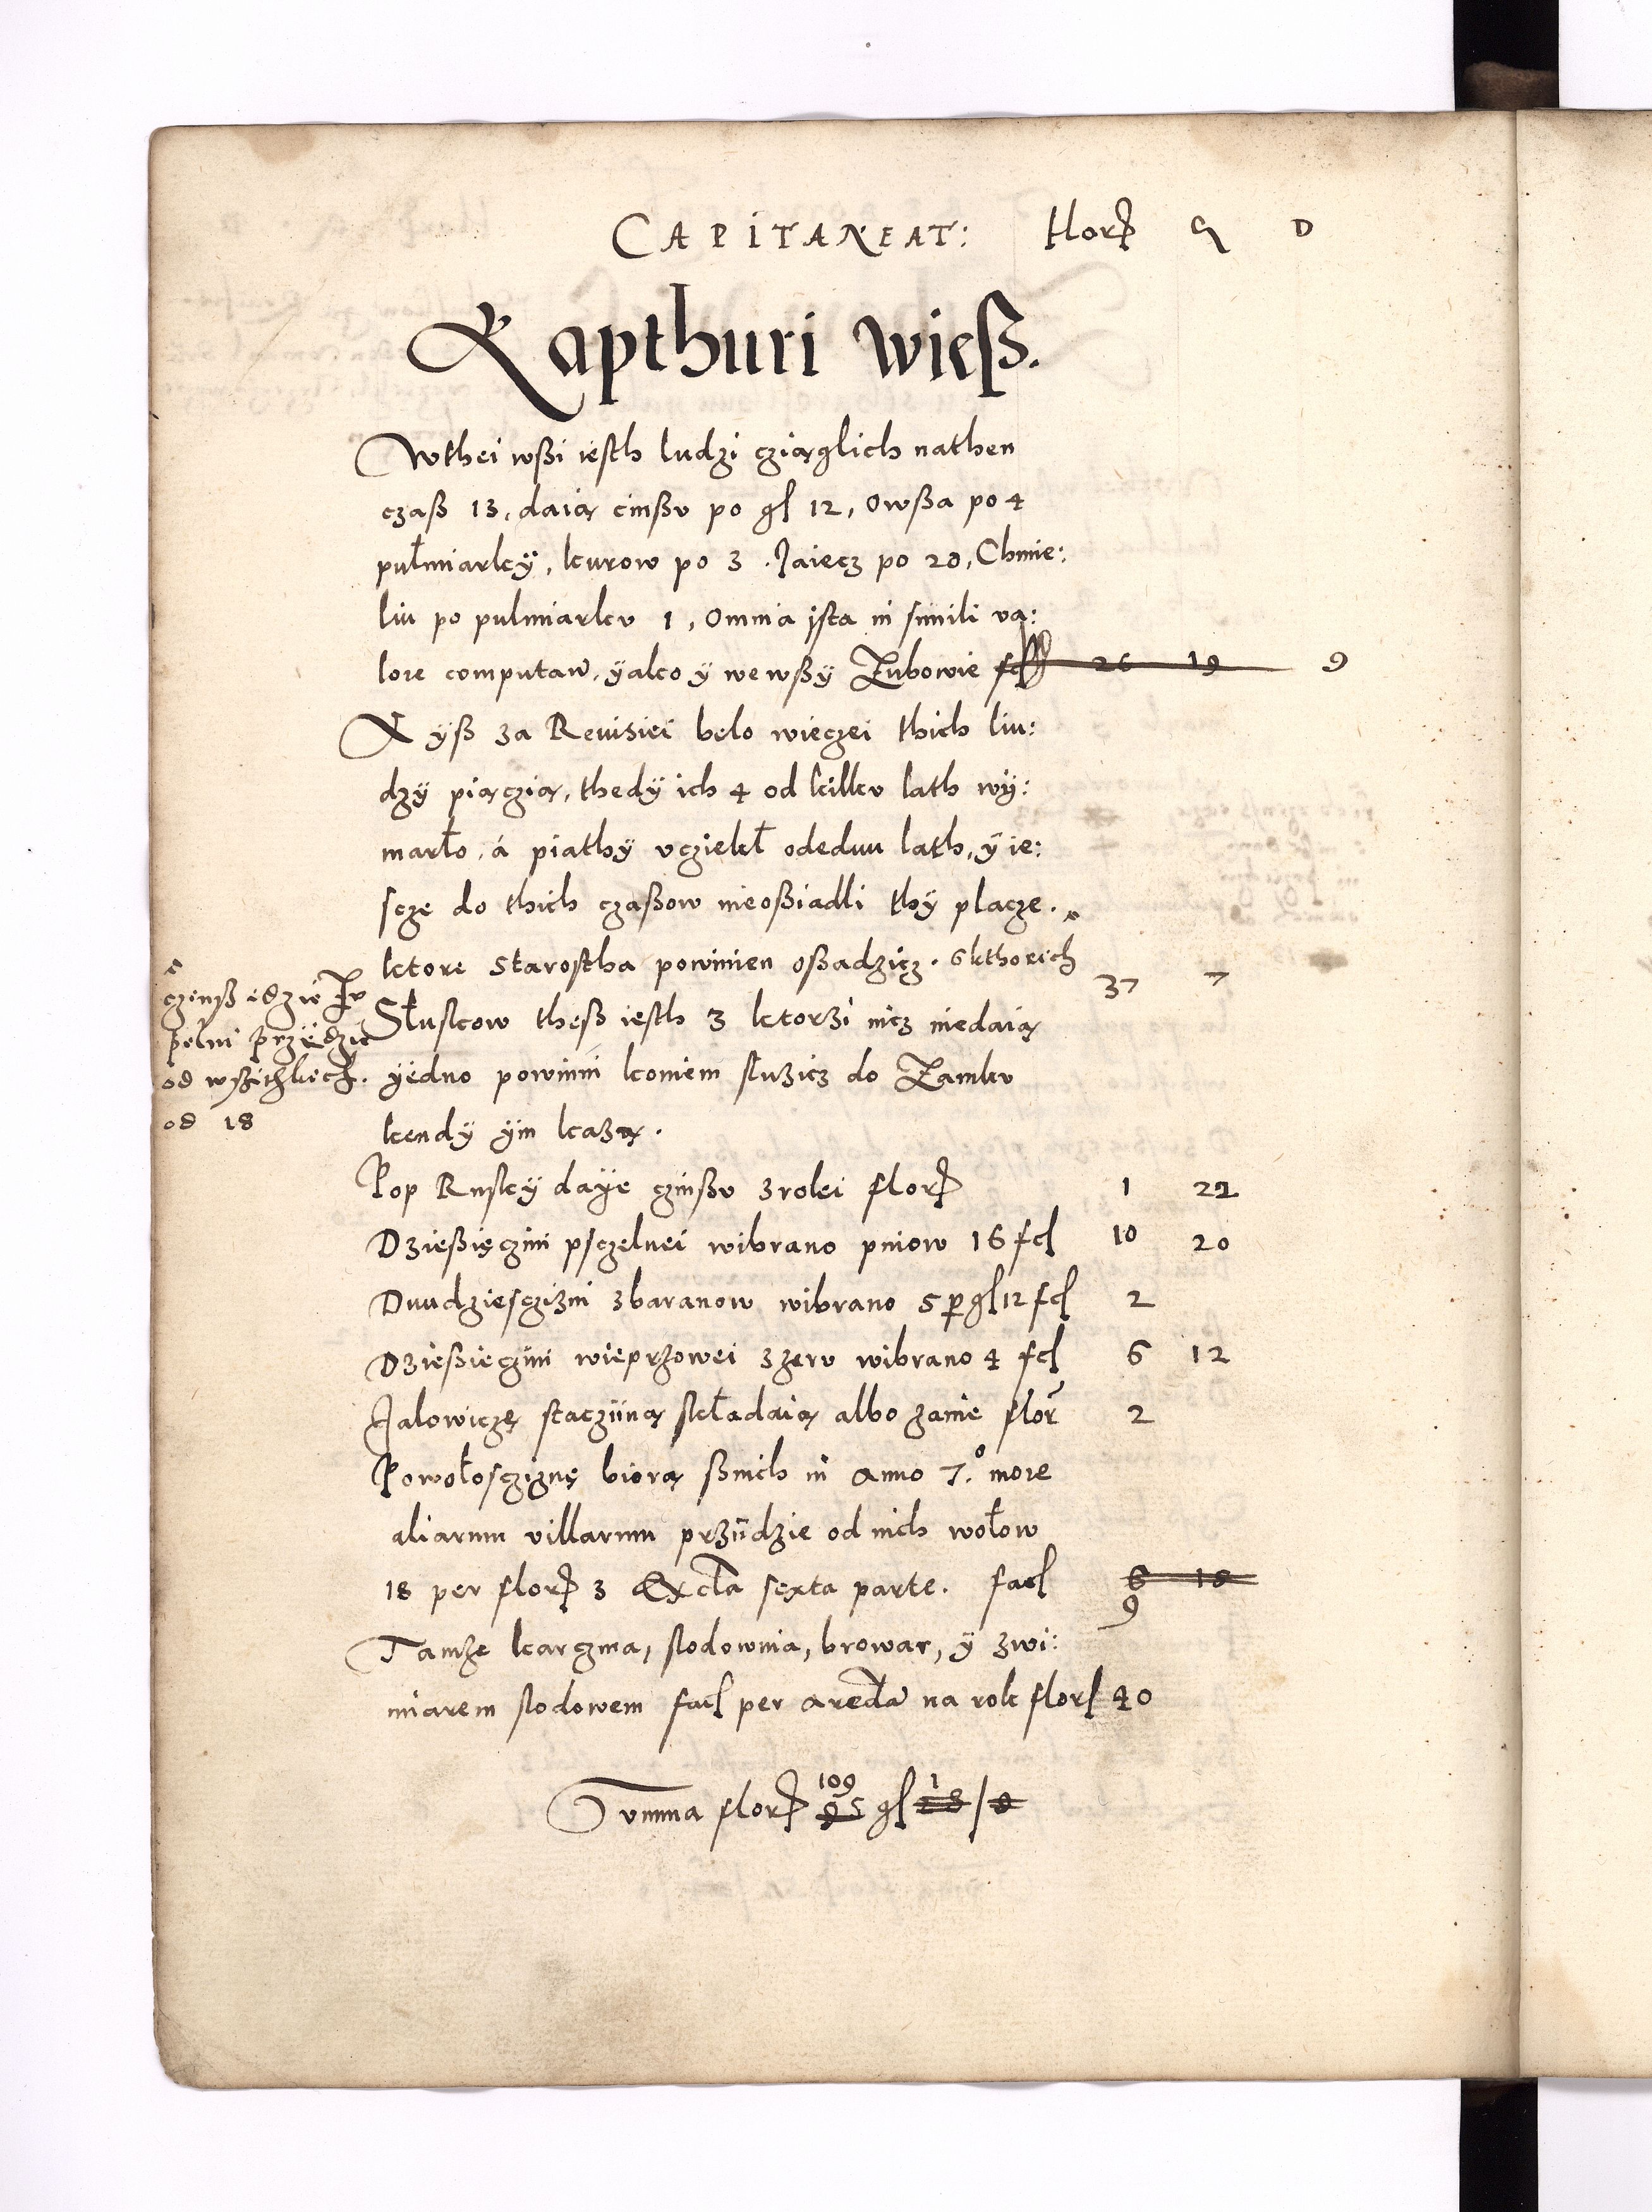 CAPITANEAT: flor g D
Kapthuri wieß.
Wthei wßi iesth ludzi cziąglich nathen
czaß 13, daią cinßu po gl 12, Owßa po 4
pułmiarky, kurow po 3. Jaiecz po 20, Chmie:
liu po pulmiarku 1, Omnia ista in simili va:
lore computan, yako y we wßy Zubowie fcl 26 19 9
Kyß za Reuisiei belo wieczei thich liu:
dzy piączią, thedy ich 4 od kilku lath wy:
marło, á piathy uciekł odedwu lath, y ie:
scze do thich czaßow nieoßiadli thy placze.
ktore Starostha powinien oßadzicz. Skthorich
37 7
Służkow theß iesth 3 ktorzi nicz niedaią
yedno powinni koniem sluzicz do Zamku
kendy ym każą.
czinß idzie Zu
pelni przydzie
od wßithkich.
od 18
Pop Rusky daye czinßu zroli flor 1 22
Dzießięczini psczelnei wibrano pniow 16 fcl 10 20
Dwudziesczizni zbaranow wibrano 5 per gl 12 fcl 2
Dzießieczini wieprzowei zżeru wibrano 4 fcl 6 12
Jalowiczę stacziiną składaią albo zanie flor 2
Powołosczignę biorą ßnich in anno 7.º more
aliarum villarum prziidzie od nich wołow
18 per flor 3 Excta sexta parte. facl 6 18
9
Tamże karczma, slodownia, browar, y zwi:
miarem slodowem facl per areda na rok flor 40
Summa flor 109 95 gl 1 23 / 9